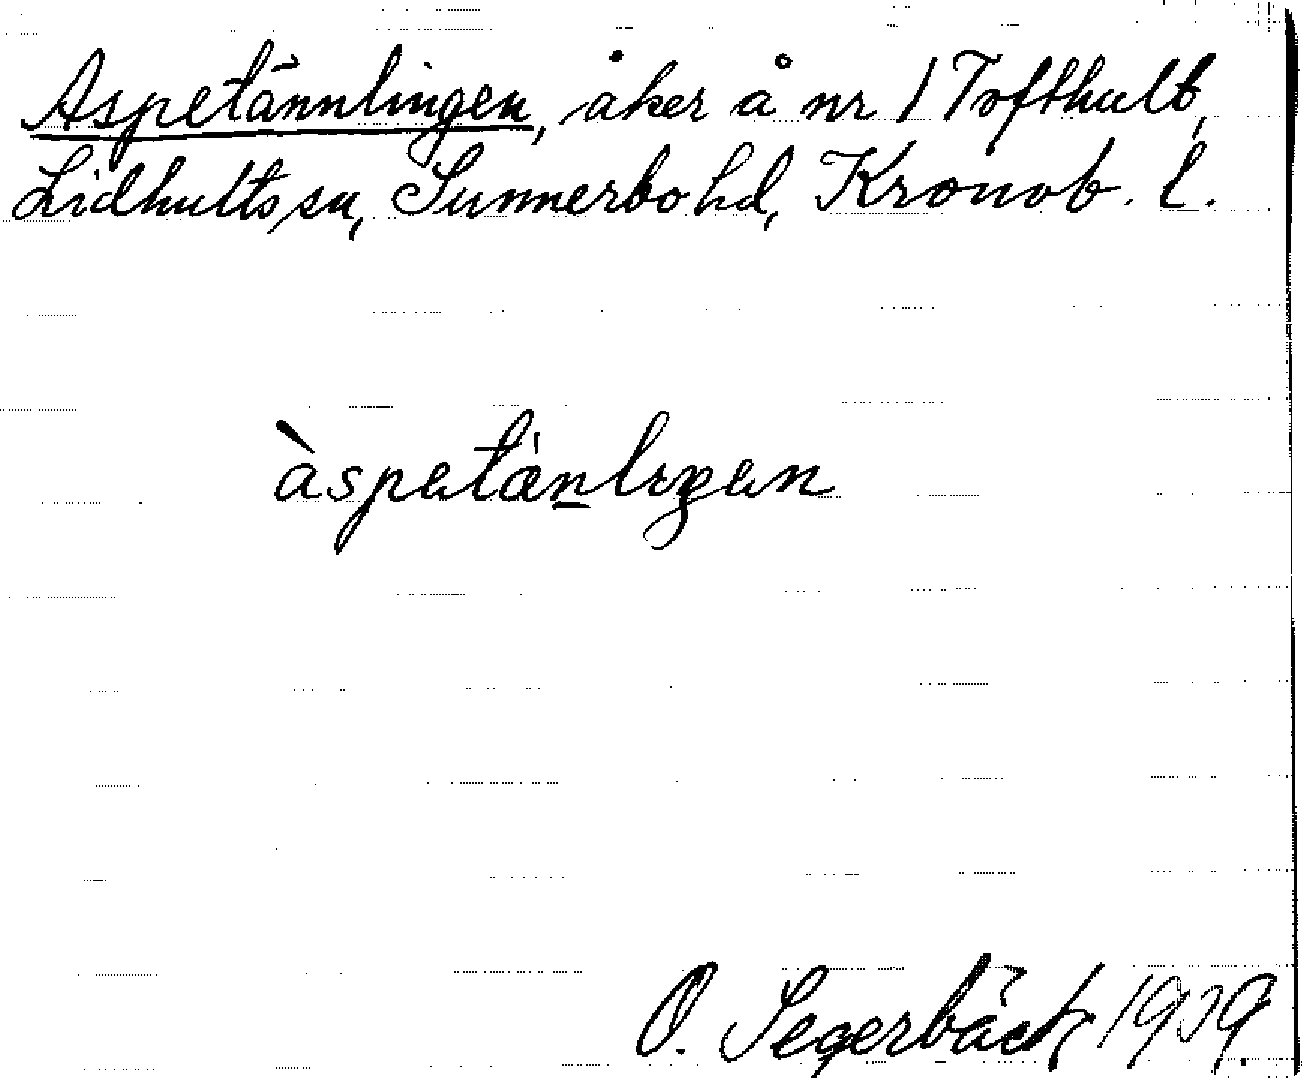 Aspetännlingen, åker å nr 1 Tofthult,
Lidhults sn, Sunnerbo hd, Kronob. l.
àspatä̀nlıŋan
O. Segerbäck 1939.